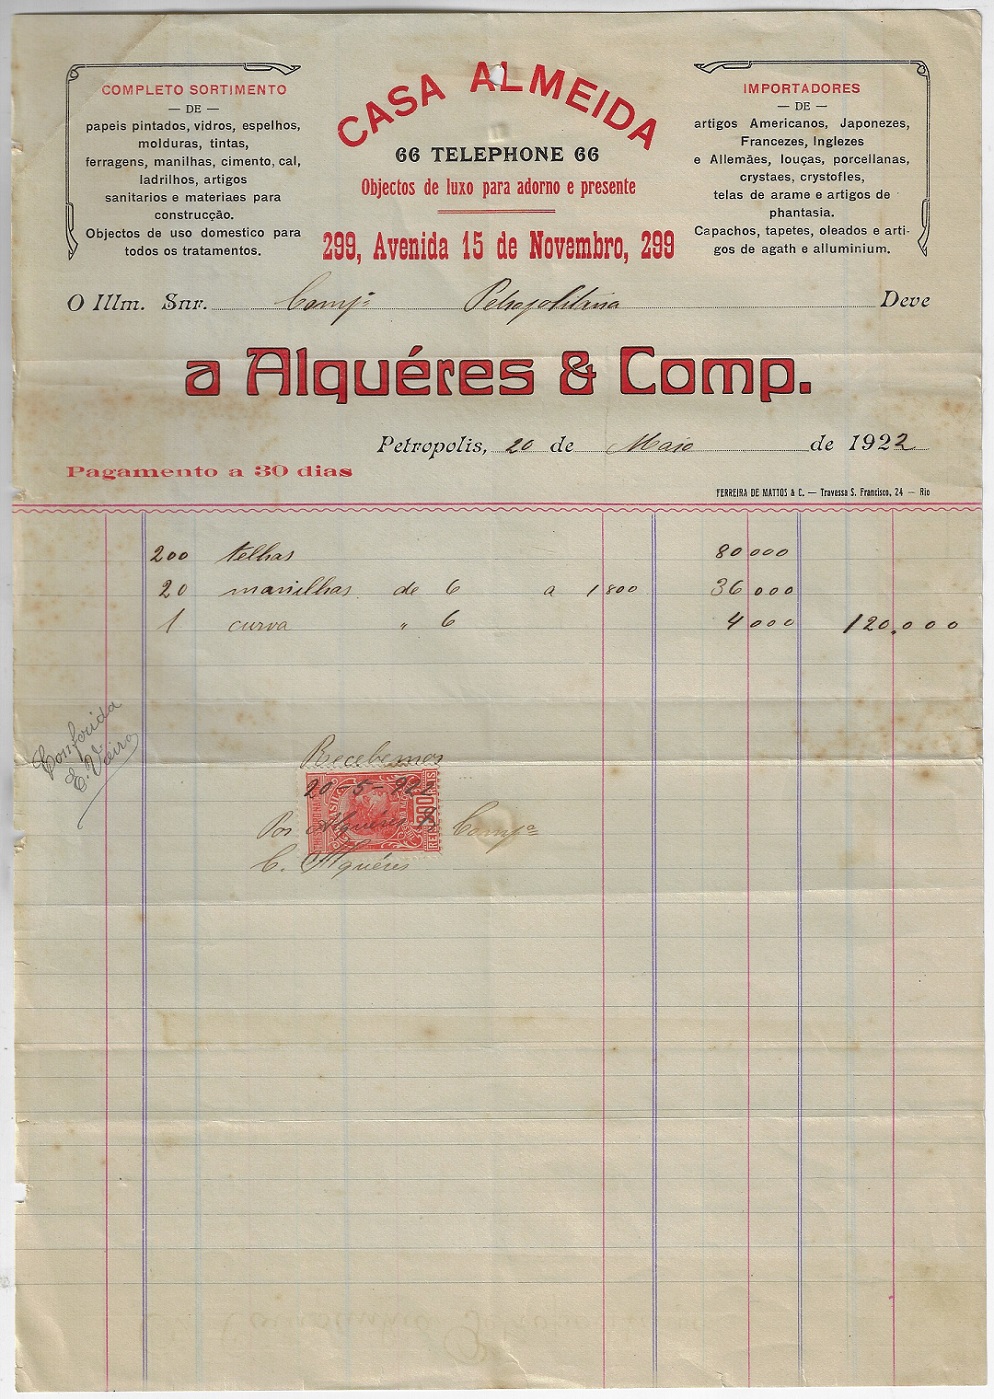 COMPLETO SORTIMENTO
— DE —
papeis pintados, vidros, espelhos,
molduras, tintas,
ferragens, manilhas, cimento, cal,
ladrilhos, artigos
sanitarios e materiaes para
construcção.
Objectos de uso domestico para
todos os tratamentos.
CASA ALMEIDA
66 TELEPHONE 66
Objectos de luxo para adorno e presente
299, Avenida 15 de Novembro, 299
IMPORTADORES
— DE —
artigos Americanos, Japonezes,
Francezes, Inglezes
e Allemães, louças, porcellanas,
crystaes, crystofles,
telas de arame e artigos de
phantasia.
Capachos, tapetes, oleados e arti-
gos de agath e alluminium.
O Illm. Snr. Compª Petropolitana Deve
a Alquéres & Comp.
Petropolis, 20 de Maio de 1922
Pagamento a 30 dias
FERREIRA DE MATTOS & C. — Travessa S. Francisco, 24 — Rio
200 telhas 80000
20 manilhas de 6 a 1800 36000
1 curva " 6 4000 120.000
Conferida
E. Vieira
Recebemos
20-5-922
Por Alquéres & Compª
C. Alquéres
300
REIS